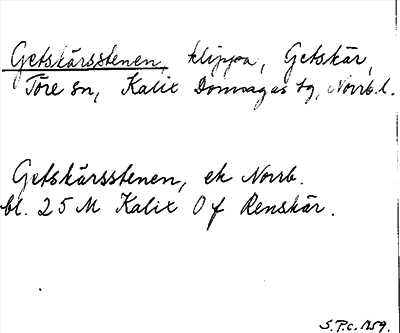 Getskärsstenen, klippa, Getskär,
Töre sn, Kalix Domsagas tg, Norrb. l.
Getskärsstenen, ek Norrb.
bl. 25 M Kalix Of Renskär.
S.P.c. 1759.